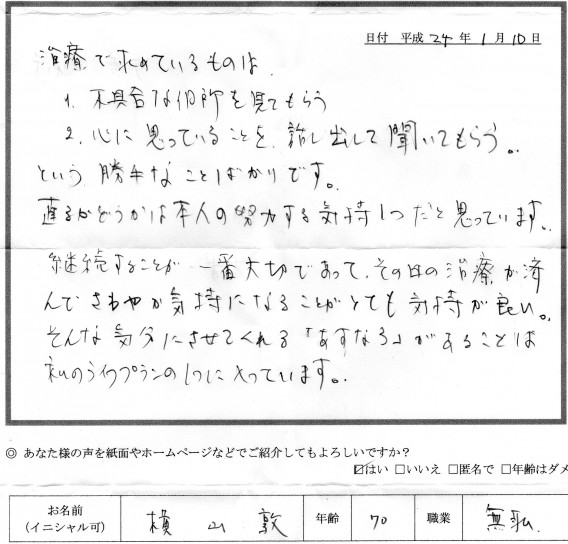 日付 平成 24 年 1 月 10 日
治療で求めているものは
1. 不具合な個所を見てもらう
2. 心に思っていることを、話し出して聞いてもらう。
という勝手なことばかりです。
直るかどうかは本人の努力する気持1つだと思っています。
継続することが一番大切であって、その日の治療が済
んでさわやか気持になることがとても気持が良い。
そんな気分にさせてくれる「あすなろ」があることは
私のライフプランの1つに入っています。
◎ あなた様の声を紙面やホームページなどでご紹介してもよろしいですか?
☑はい □いいえ □匿名で □年齢はダメ
お名前 横山 敦 年齢 70 職業 無職
(イニシャル可)